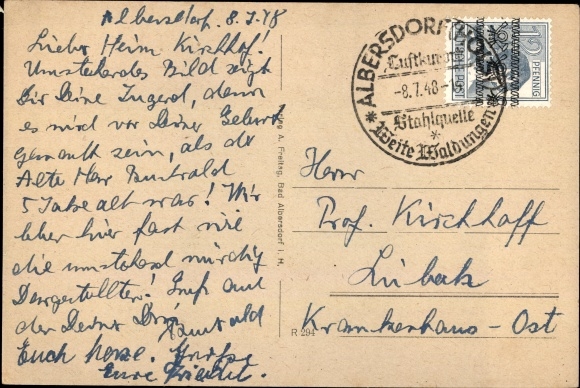 Albersdorf. 8.7.48
Lieber Heim Kirchhof!
Umstehendes Bild zeigt
Dir Deine Jugend, denn
es wird vor Deiner Geburt
gemalt sein, als der
Alte Herr
5 Jahre alt war! Wir
leben hier fast wie
die umstehend würdig
Dargestellten! Gruß auf
der Deine
Euch herzl. Grüße
Eure
Verlag A. Freitag, Bad Albersdorf i. H.
R 294
ALBERSDORF (HOLST)
Luftkurort
-8.7.48-
Stahlquelle
* Weite Waldungen *
12 PFENNIG
Herrn
Prof. Kirchhoff
Lübeck
Krankenhaus-Ost